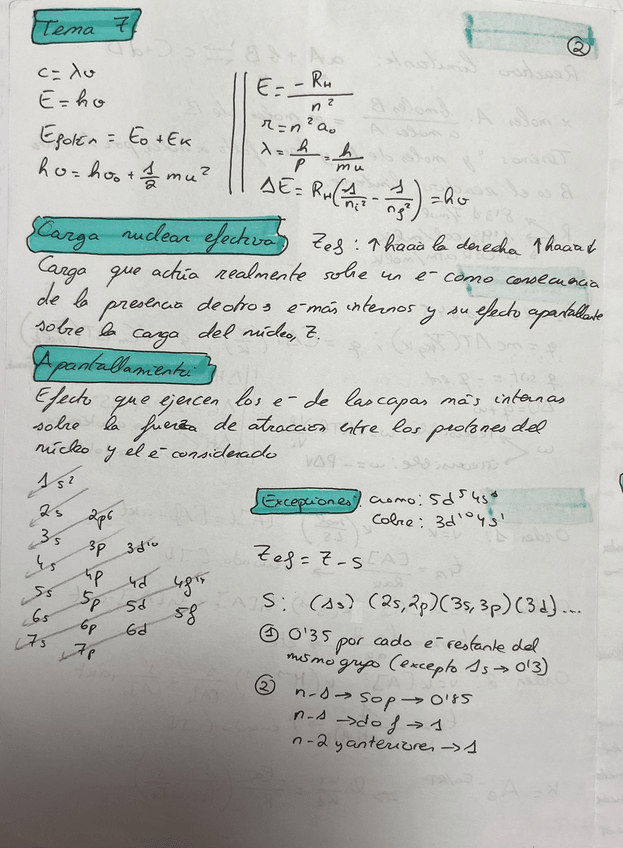 Tema 7
②
c = λυ
E = hυ
Efotón = E₀ + Eₖ
hυ = hυ₀ + 1/2 mu²
E = -R_H/n²
r = n²a₀
λ = h/p = h/mu
ΔE = R_H(1/nᵢ² - 1/n_f²) = hυ
Carga nuclear efectiva Zef: ↑ hacia la derecha ↑ hacia ↓
Carga que actúa realmente sobre un e- como consecuencia
de la presencia de otros e- más internos y su efecto apantallante
sobre la carga del núcleo, Z.
Apantallamiento:
Efecto que ejercen los e- de las capas más internas
sobre la fuerza de atracción entre los protones del
núcleo y el e- considerado
1s²
2s 2p⁶
3s 3p 3d¹⁰
4s 4p 4d 4f¹⁴
5s 5p 5d 5f
6s 6p 6d
7s 7p
Excepciones: cromo: 5d⁵4s¹
Cobre: 3d¹⁰4s¹
Zef = Z - S
S: (1s) (2s, 2p) (3s, 3p) (3d)...
① 0'35 por cada e- restante del
mismo grupo (excepto 1s → 0'3)
② n-1 → s o p → 0'85
n-1 → d o f → 1
n-2 y anteriores → 1